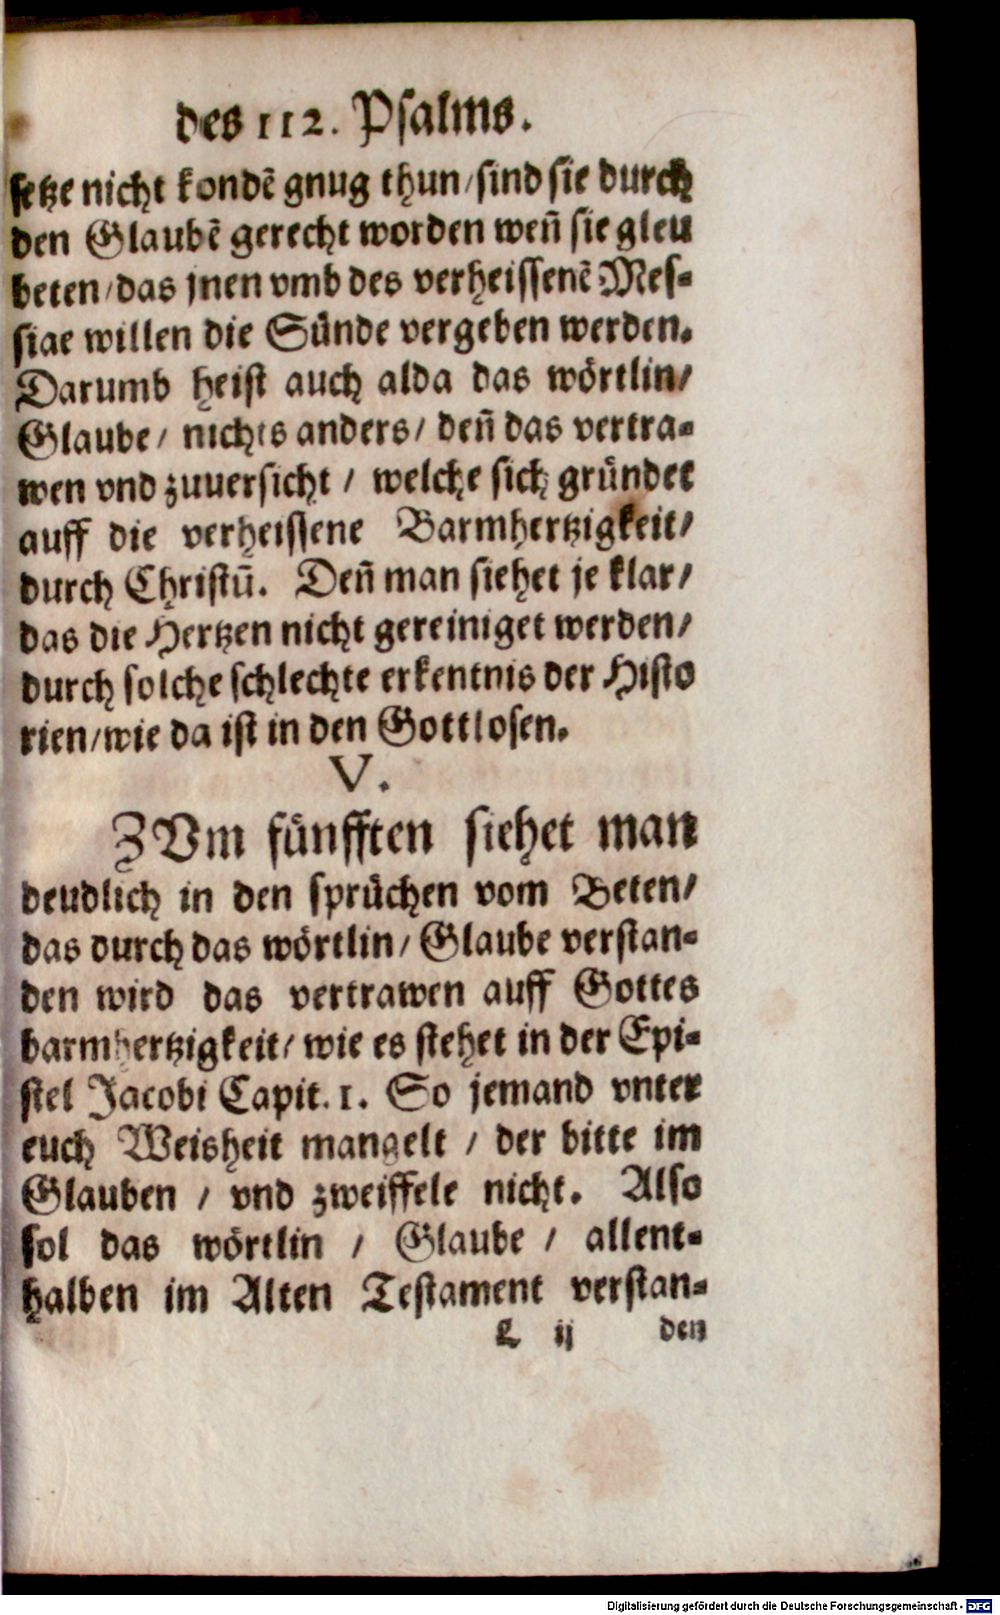 des 112. Psalms.
setze nicht kondē gnug thun/sind sie durch
den Glaubē gerecht worden weñ sie gleu
beten/das jnen vmb des verheissenē Mes-
siae willen die Sünde vergeben werden.
Darumb heist auch alda das wörtlin/
Glaube/ nichts anders/ deñ das vertra-
wen vnd zuuersicht / welche sich gründet
auff die verheissene Barmhertzigkeit/
durch Christū. Deñ man siehet je klar/
das die Hertzen nicht gereiniget werden/
durch solche schlechte erkentnis der Histo
rien/wie da ist in den Gottlosen.
V.
ZVm fünfften siehet man
deudlich in den sprüchen vom Beten/
das durch das wörtlin/ Glaube verstan-
den wird das vertrawen auff Gottes
barmhertzigkeit/ wie es stehet in der Epi-
stel Jacobi Capit. 1. So jemand vnter
euch Weisheit mangelt / der bitte im
Glauben / vnd zweiffele nicht. Also
sol das wörtlin / Glaube / allent-
halben im Alten Testament verstan-
L ij den
Digitalisierung gefördert durch die Deutsche Forschungsgemeinschaft - DFG